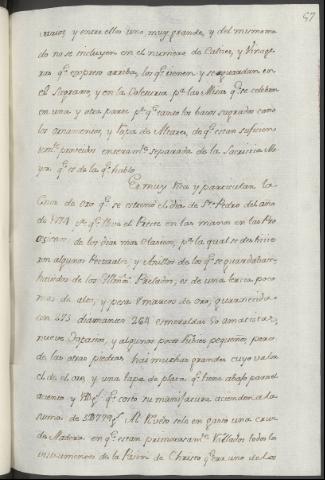 67
y entre ellos uno muy grande, y del mismo mo
do no se incluyen en el numero de Calices, y Vinage
ras qe. empeso arriba, los qe. tienen y se guardan en
el Sagrario, y en la pa. las Misas qe. se celebran
en una y otra parte pr. qe. tanto los basos sagrados como
los ornamentos, y ropa de Altares, de qe. estan suficien
separada de la Sacristia Ma
yor qe. es de la qe. hablo.
Es muy rica y particular la
de oro qe. se estrenó el dia de Sn. Pedro del año
de qe. lleva el Preste en las manos en las Pro
de los dias mas Clasicos, pa. la qual se deshicie
ron algunos Pectorales y Anillos de los qe. se guardaban
de los Illmos. Prelados, es de una tercia poco
mas de alto, y pesa 8 marcos de oro, guarnecida
con 473 diamantes 264 esmeraldas 50 amatistas,
nueve Topacios, y algunos pocos Rubies pequeños, pero
de las otras piedras hai muchas grandes cuyo valor
el de el oro y una tapa de plata qe. tiene abajo para el
asiento y qe. costó su manifactura asciende a la
suma de
de Madera en qe. estan todos los
instrumentos de la Pasion de Christo qe. era uno de los